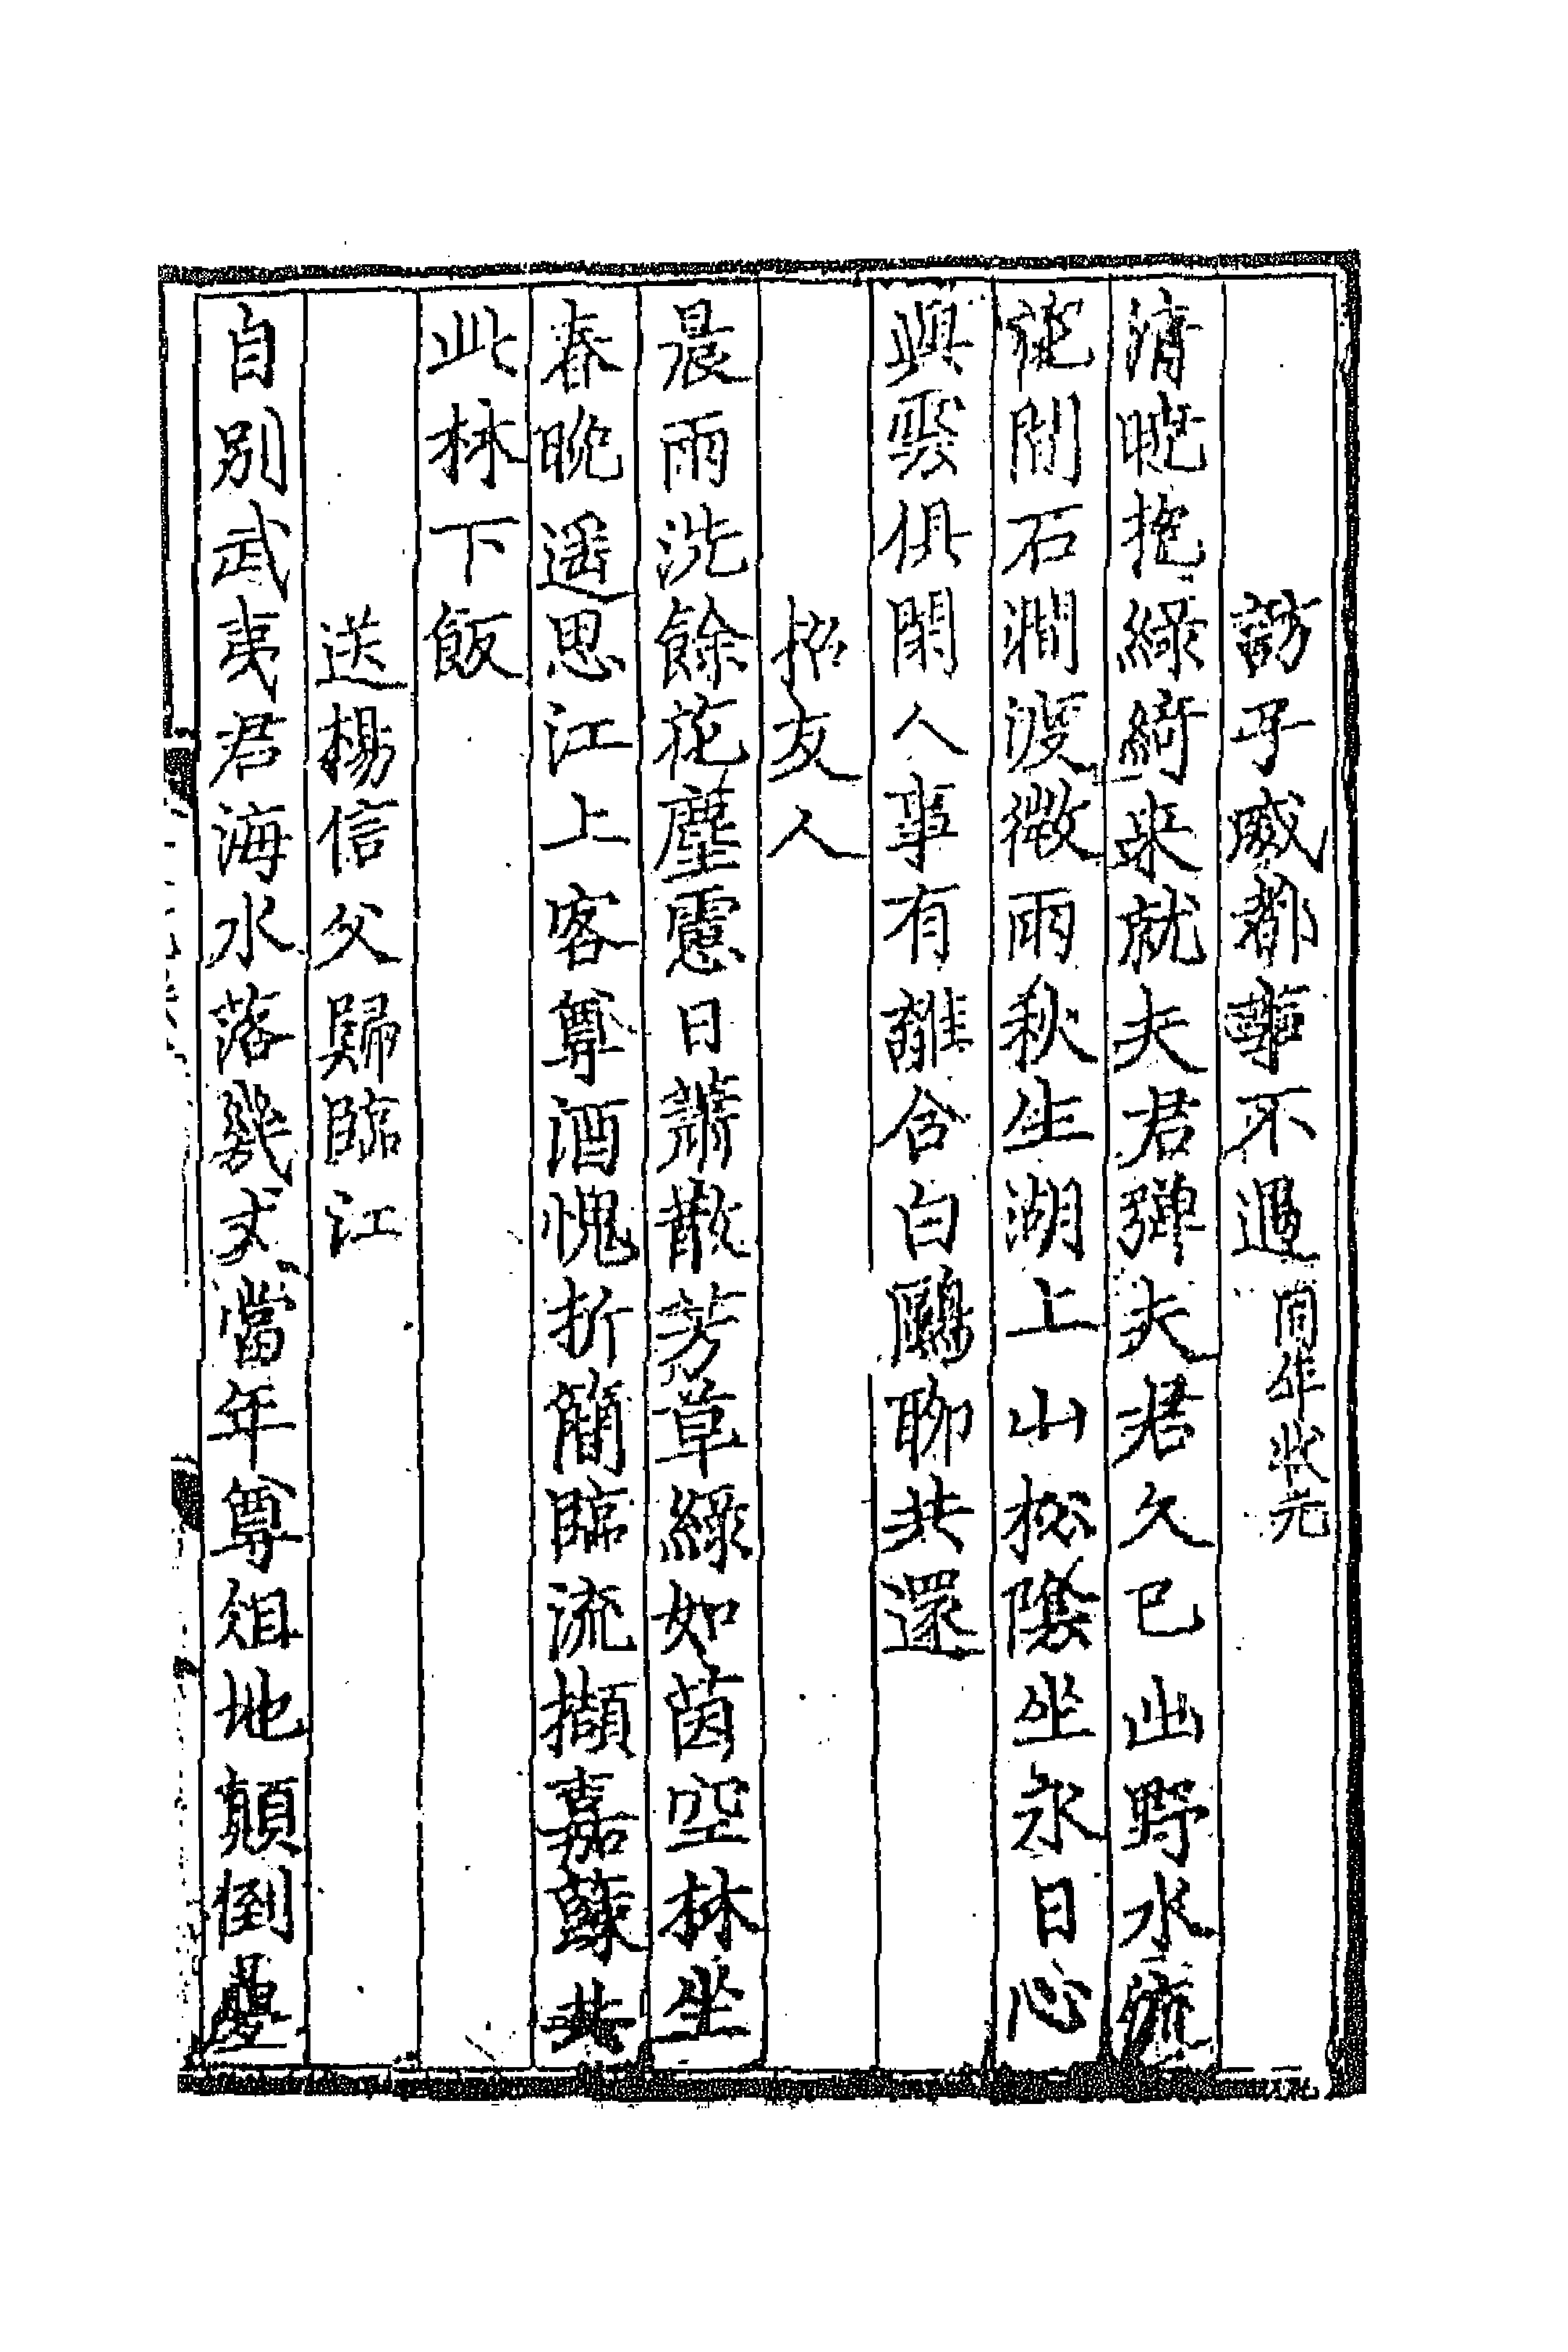 訪子威都不遇同年狀元
清曉抱緑綺来就夫君彈夫君久已出野水流
從間石澗渡微雨秋生湖上山松陰坐永日心
與雲俱閑人事有離合白鷗聊共還
招友人
晨雨洗餘花塵慮日蕭散芳草緑如茵空林坐
春晚遥思江上客尊酒愧折簡臨流擷嘉蔬共
此林下飯
送楊信父歸臨江
自別武夷君海水落幾丈當年尊俎地顛倒疊